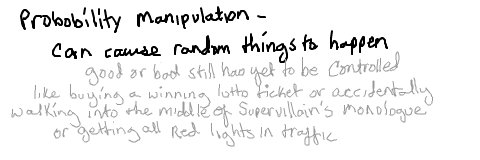 Probability Manipulation -
can cause random things to happen
good or bad still has yet to be controlled
like buying a winning lotto ticket or accidentally
walking into the middle of Supervillain's monologue
or getting all Red lights in traffic